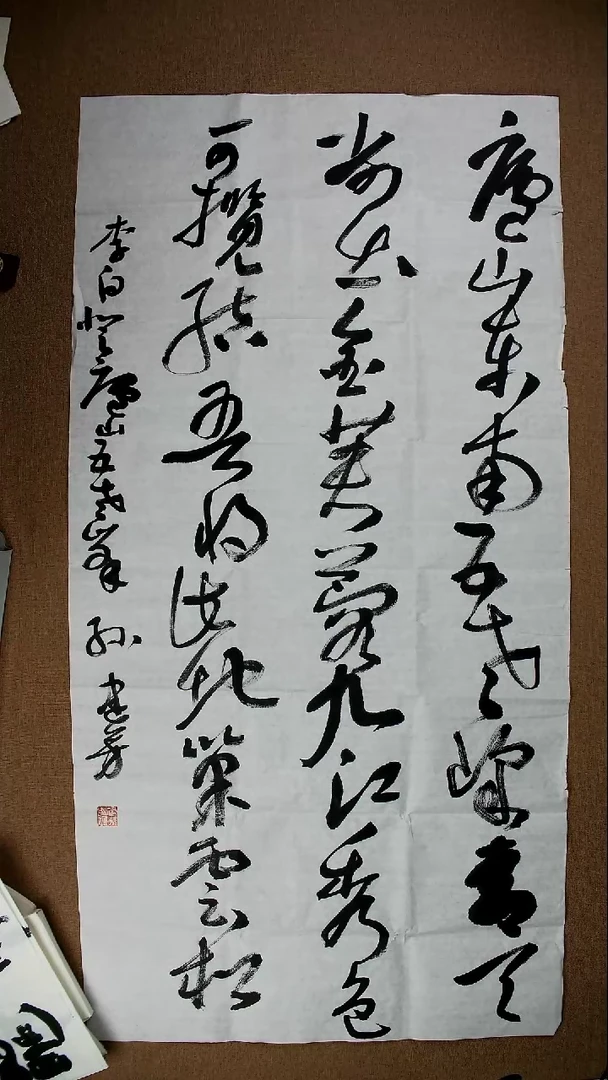 廬山东南五老峰青天
削出金芙蓉九江秀色
可攬结吾将此地巢雲松
李白登廬山五老峯 孙建芳